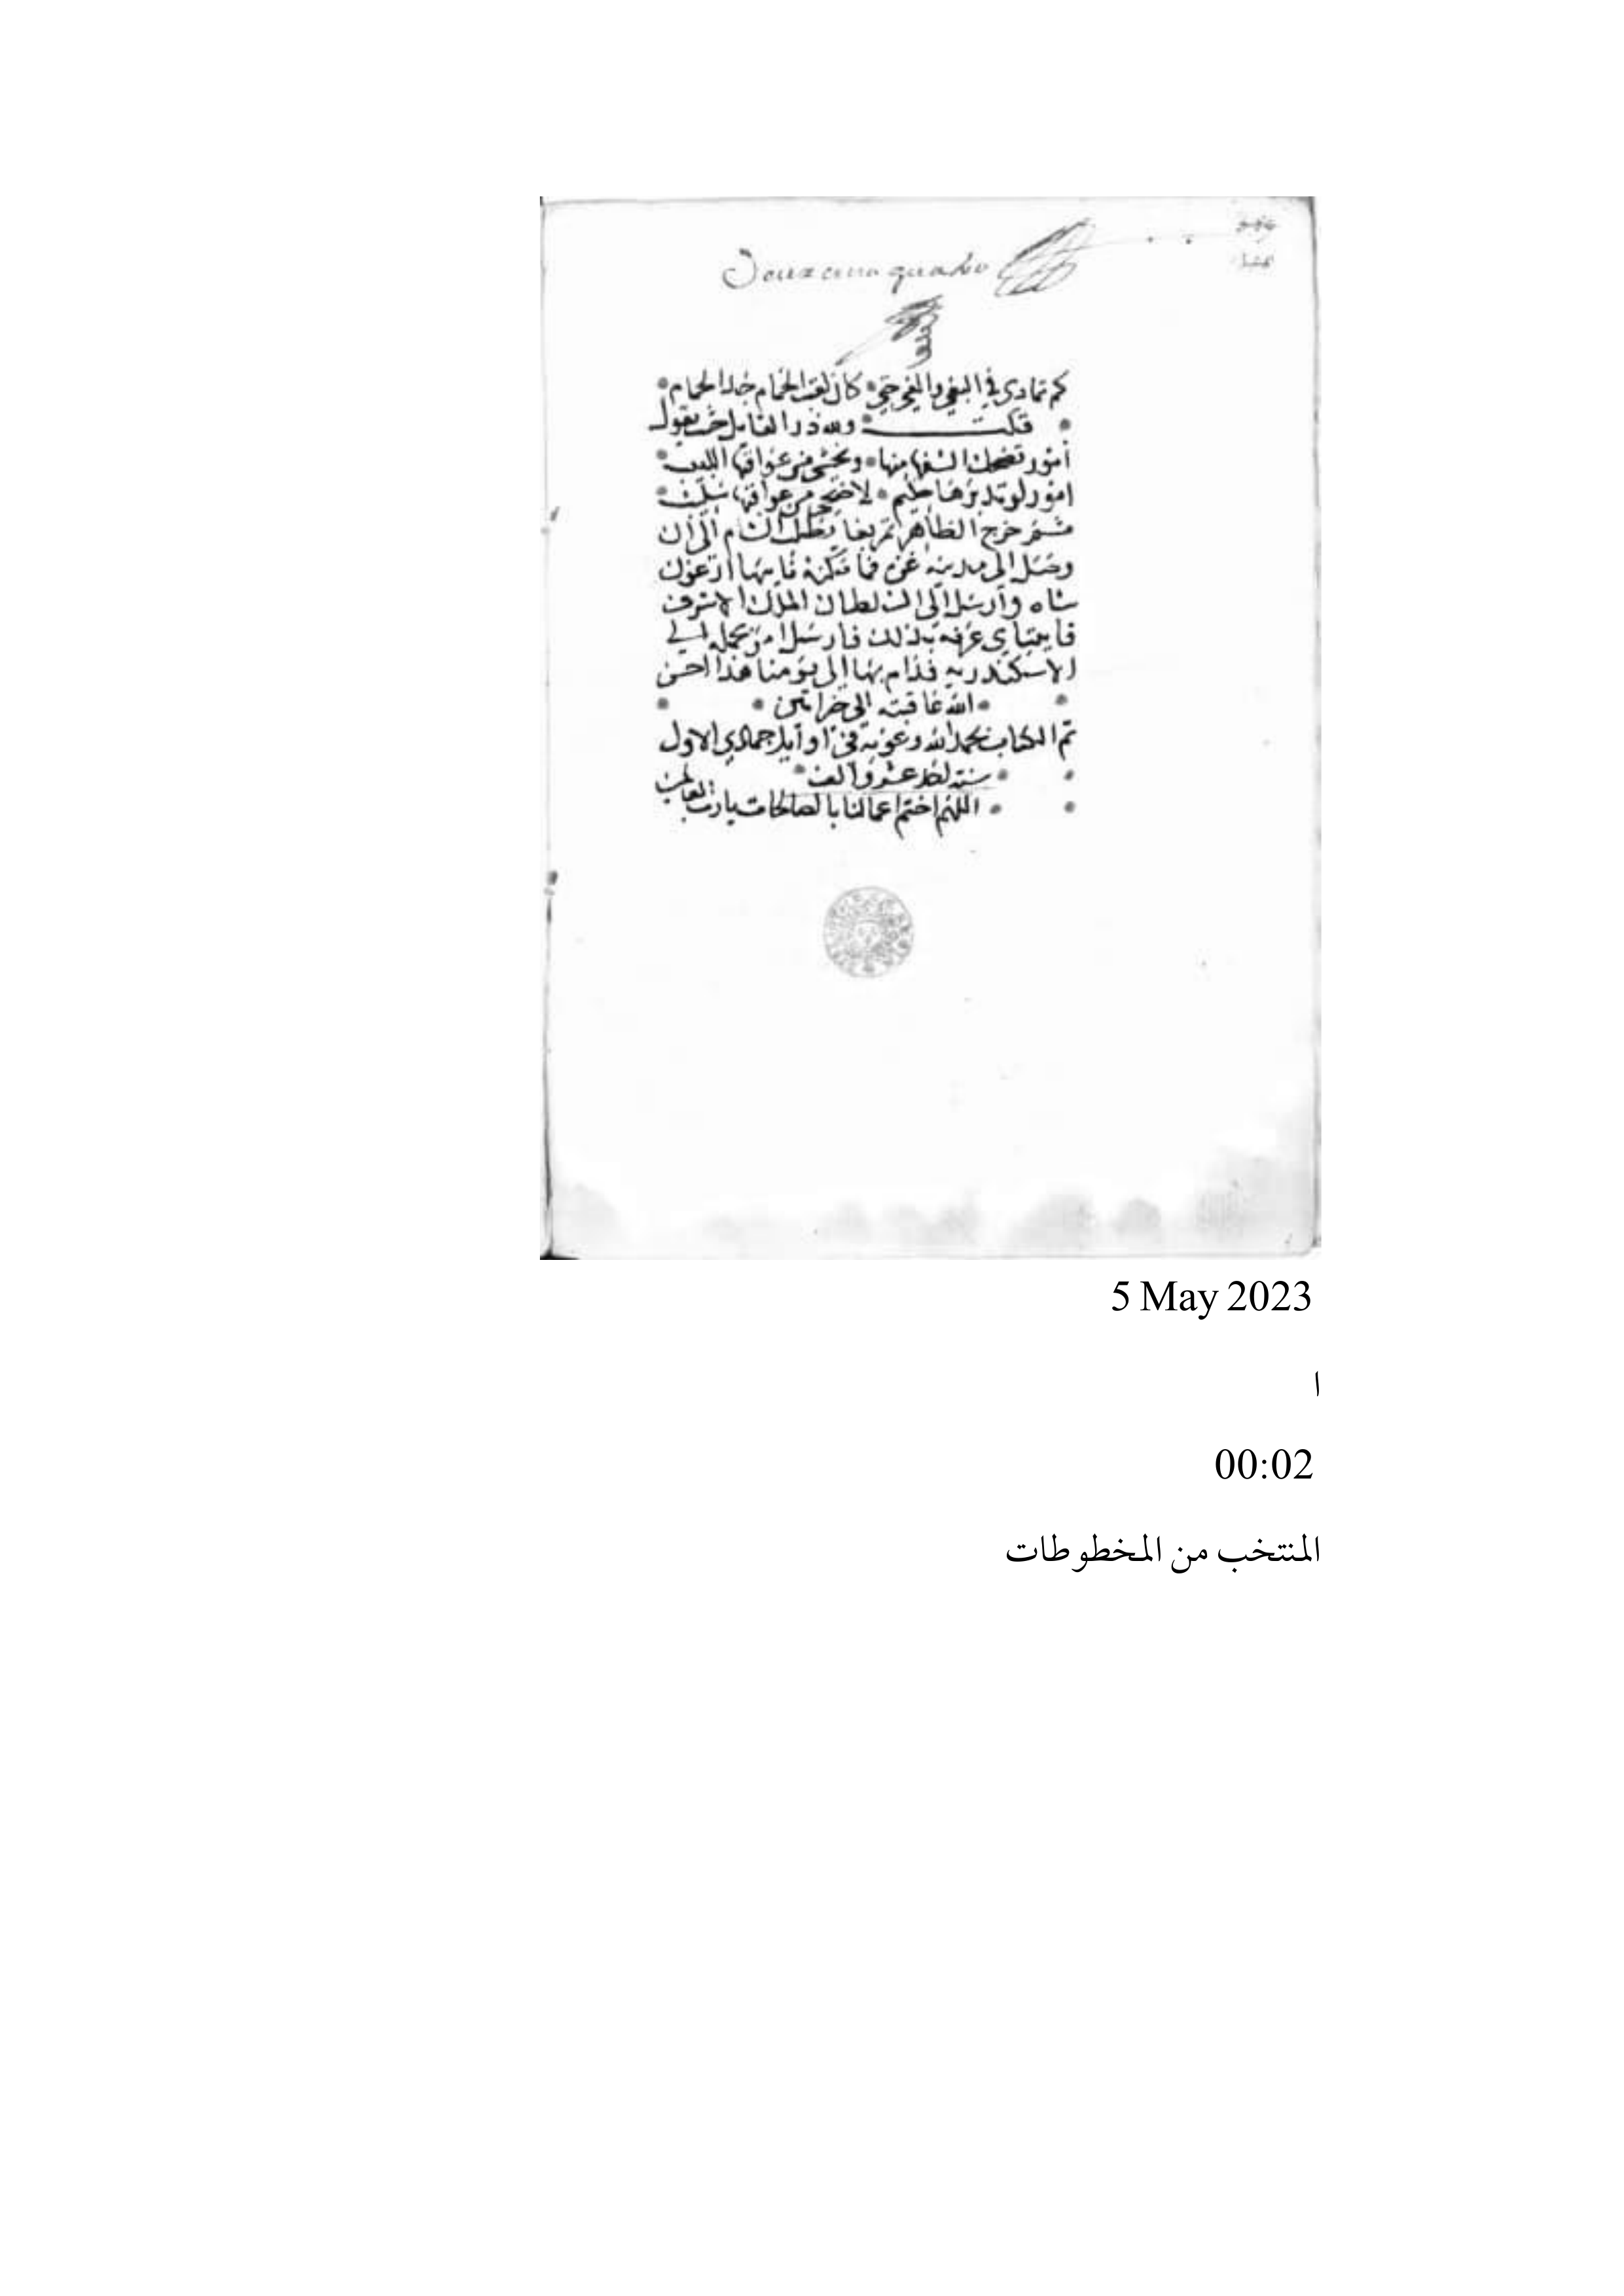 كم تمادى في البغي والغي حتى كان لعب الحمام جد الحمام
قلت ولله در القايل حيث يقول
أمور تضحك السفهاء منها ويخشى من عواقبها اللبيب
امور لو تدبرها حليم من عواقبها
ثم خرج الظاهر تمربغا يطلب الشام الى ان
وصل الى مدينة غزه فما مكنه نايبها ارغون
شاه وأرسل الى السلطان الملك الاشرف
قايتباي عرفه بذلك فارسل امر بحمله الى
الاسكندريه فدام بها الى يومنا هذا احسن
الله عاقبته الى خير امين
تم الكتاب بحمد الله وعونه في اوايل جمادى الاول
سنة احد عشر والف
اللهم اختم اعمالنا بالصالحات يا رب العالمين
5 May 2023
ا
00:02
المنتخب من المخطوطات